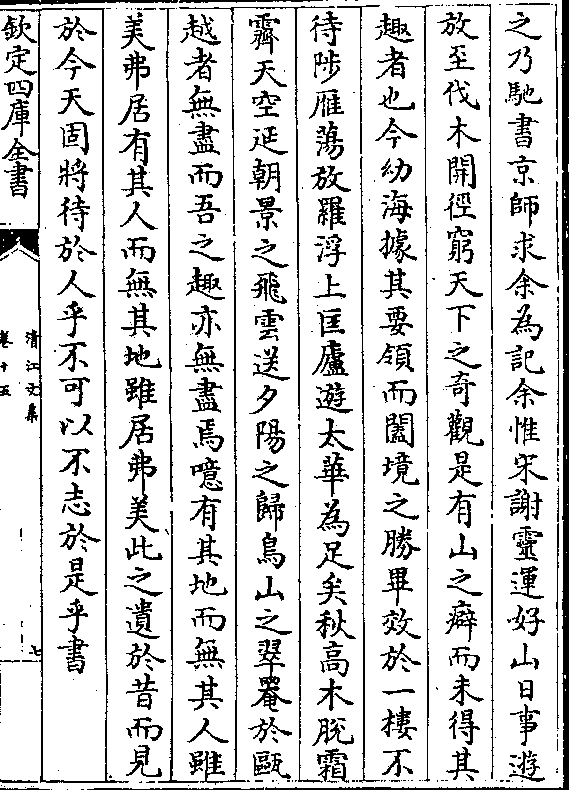 之乃馳書京師求余為記余惟宋謝靈運好山日事遊
放至伐木開徑窮天下之奇觀是有山之癖而未得其
趣者也今幼海據其要領而闔境之勝畢效於一樓不
待陟雁蕩放羅浮上匡廬遊太華為足矣秋高木脫霜
霽天空延朝景之飛雲送夕陽之歸鳥山之翠罨於甌
越者無盡而吾之趣亦無盡焉噫有其地而無其人雖
美弗居有其人而無其地雖居弗美此之遺於昔而見
於今天固將待於人乎不可以不志於是乎書
欽定四庫全書
清江文集
卷十五
七